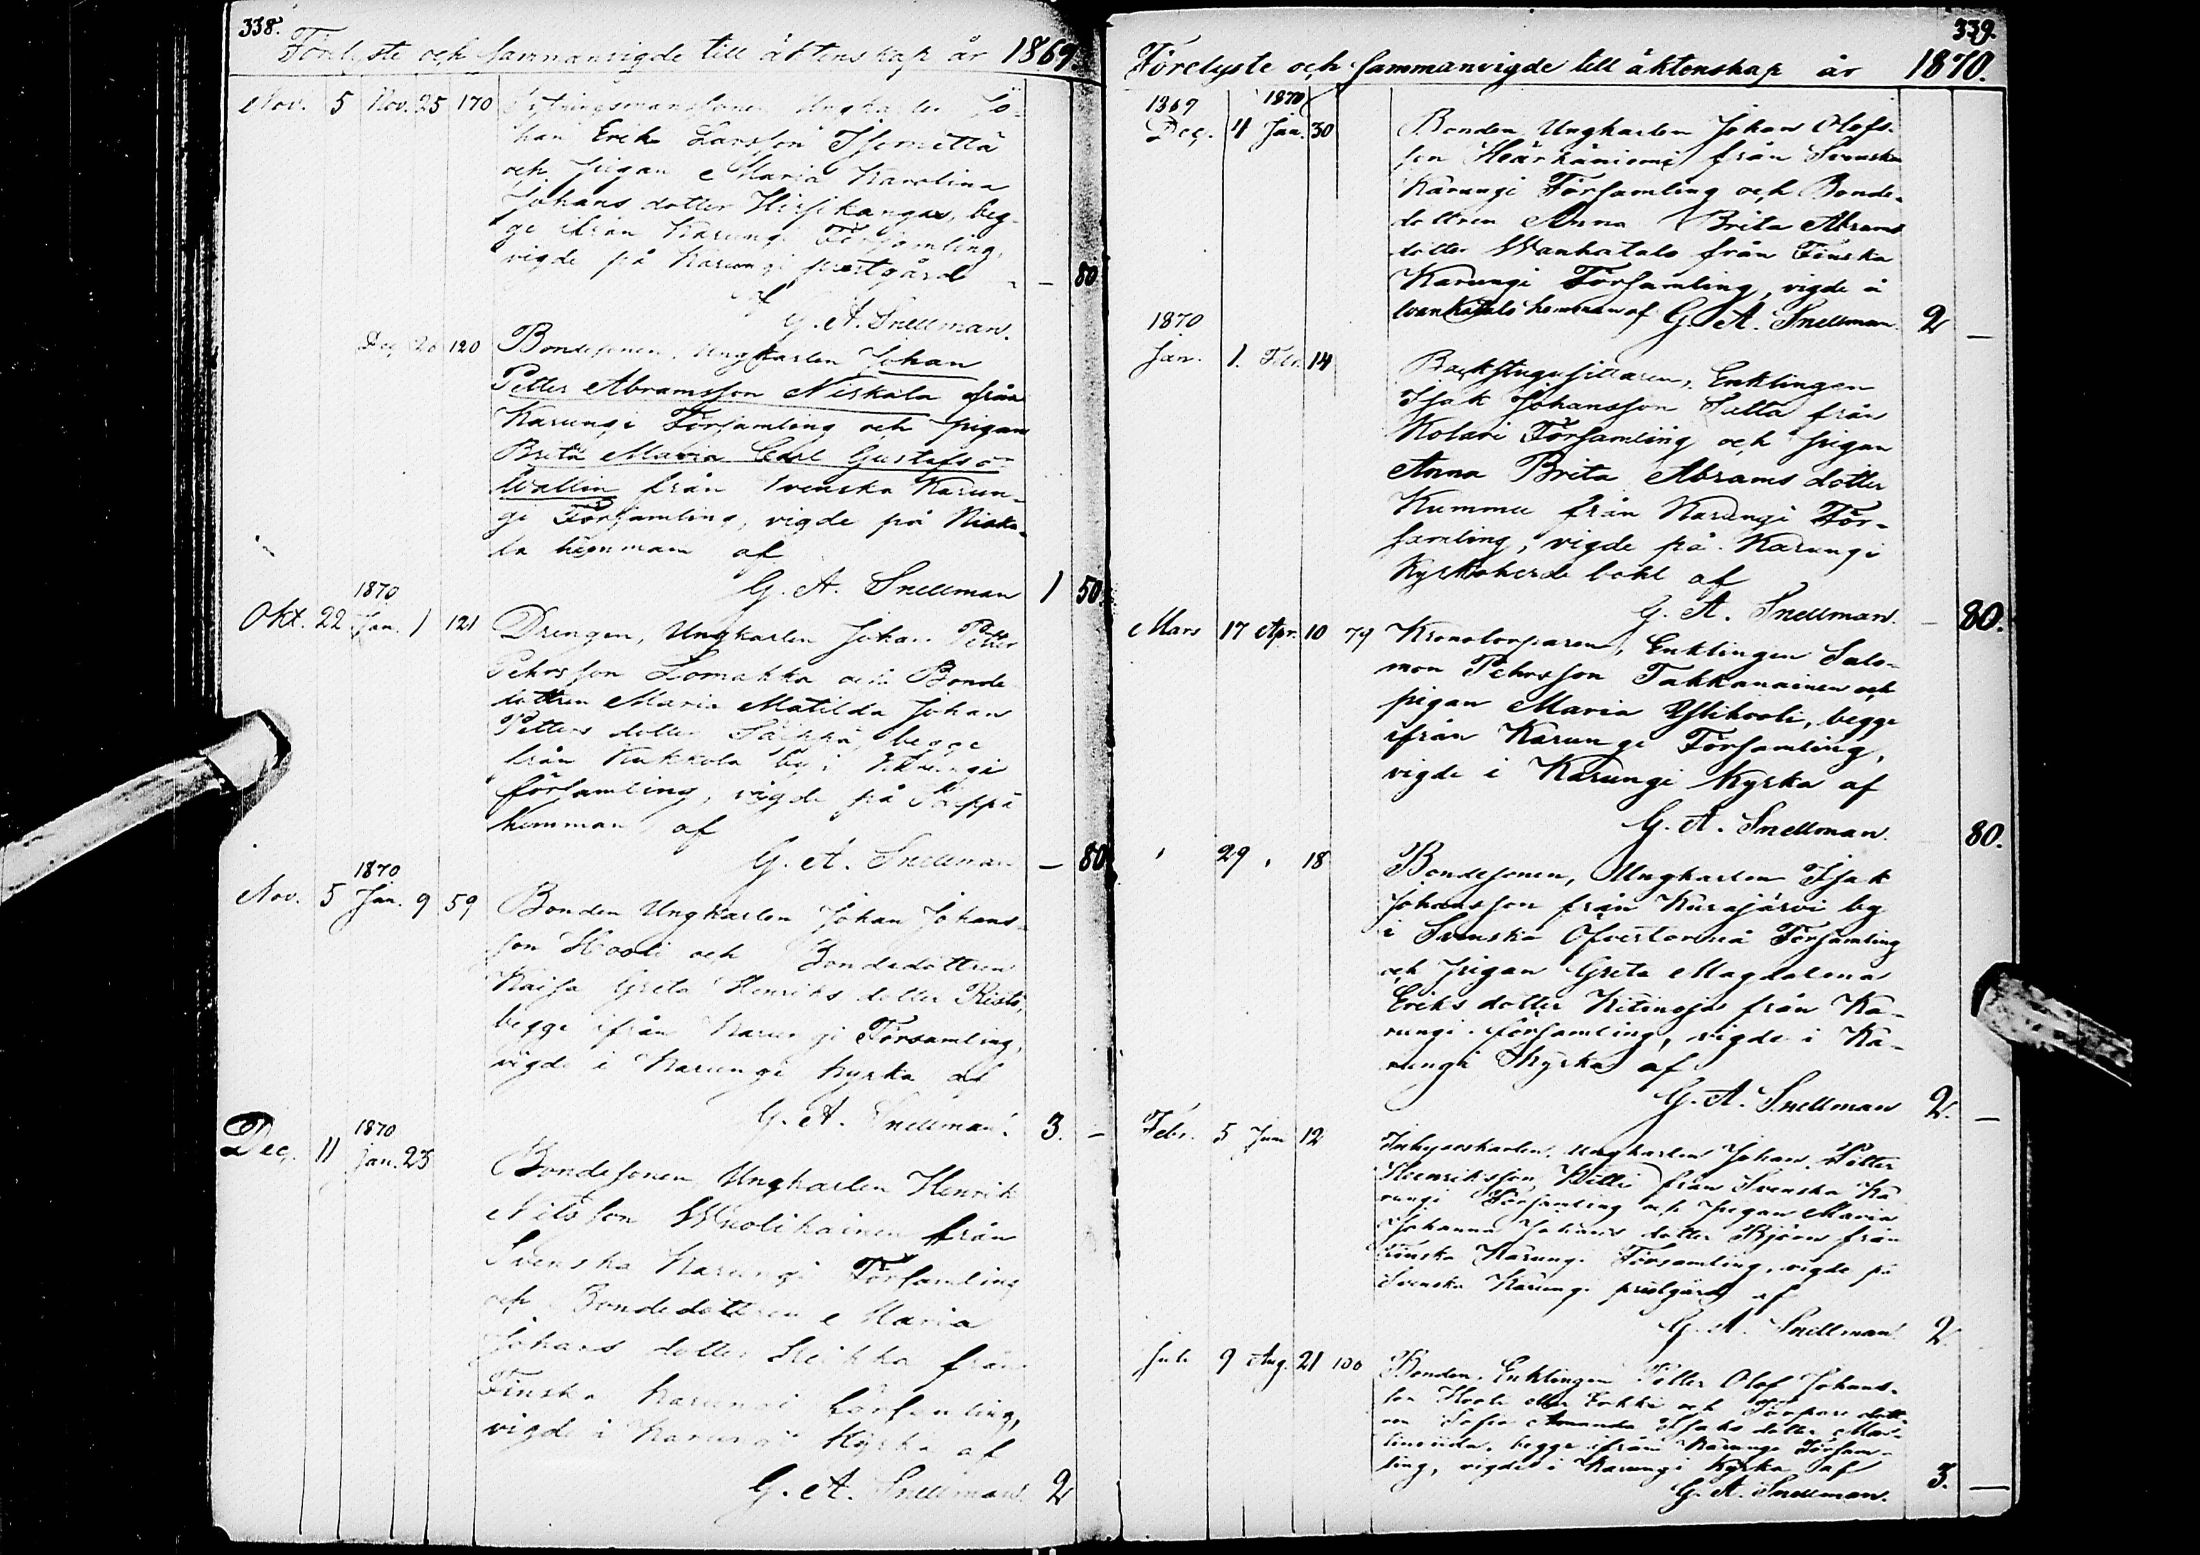 338.
Förelyste och Sammanvigde till äktenskap år 1869.
Nov. 5 Nov. 25 170 Ungkarlen Jo-
han Erik Larsson
och pigan Maria Karolina
Johans dotter Hirsikangas, beg-
ge ifrån Karungi Församling,
vigde på Karungi prestgård
af — 80
G. A. Snellman.
Dec 26 120 Bondesonen, Ungkarlen Johan
Petter Abramsson Niskala från
Karungi Församling och pigan
Brita Maria Carl Gustafs d:
Wallin från Svenska Karun-
gi Församling, vigde på Niska-
la hemman af
G. A. Snellman 1 50.
1870
Okt. 22 Jan. 1 121 Drengen, Ungkarlen Johan Petter
Pehrsson Lomakka och Bonde
dottren Maria Matilda Johan
Petters dotter Säippä, begge
från Kukkola by i Karungi
församling, vigde på Säippä
hemman af
G. A. Snellman — 80
1870
Nov. 5 Jan. 9 59 Bonden Ungkarlen Johan Johans-
son Hooli och Bondedottren
Kaisa Greta Henriks dotter Risto,
begge ifrån Karungi Församling,
vigde i Karungi kyrka af
G. A. Snellman. 3. —
1870
Dec. 11 Jan. 23
Bondesonen Ungkarlen Henrik
Nilsson Wuolikainen från
Svenska Karungi Församling
och Bondedottren Maria
Johans dotter Heikka från
Finska Karungi församling,
vigde i Karungi Kyrka af
G. A. Snellman. 2
339.
Förelyste och Sammanvigde till äktenskap år 1870.
1869 1870
Dec. 4 Jan. 30 Bonden, Ungkarlen Johan Olofs-
son från Svenska
Karungi Församling och Bonde-
dottren Anna Brita Abrams
dotter Wanhatalo från Finska
Karungi Församling, vigde å
Wanhatalo hemman af G. A. Snellman 2 —
1870
Jan. 1. Febr. 14 Backstugusittaren, Enklingen
Isak Johansson Satta från
Kolari Församling och pigan
Anna Brita Abrams dotter
Kummu från Karungi För-
samling, vigde på Karungi
Kyrkoherde bohl af
G. A. Snellman. — 80.
Mars 17 Apr. 10 79 Kronotorparen, Enklingen Salo-
mon Pehrsson Takkanainen och
pigan Maria Ylihooli, begge
ifrån Karungi Församling,
vigde i Karungi Kyrka af
G. A. Snellman. 80.
" 29 " 18 Bondesonen, Ungkarlen Isak
Johansson från Kuiajärvi by
i Svenska Öfvertorneå Församling
och pigan Greta Magdalena
Eriks dotter Kitinoja från Ka-
rungi församling, vigde i Ka-
rungi Kyrka af
G. A. Snellman 2. —
Febr. 5 Juni 12 Inhyseskarlen, ungkarlen Johan Petter
Henriksson från Svenska Ka
rungi Församling och pigan Maria
Johanna Johans dotter Björn från
Finska Karungi Församling, vigde på
Svenska Karungi prestgård af
G. A. Snellman. 2.
Juli 9 Aug. 21 100 Bonden, Enklingen Petter Olof Johans-
son Hooli eller och Torpare dott-
ren Sofia Amanda Isaks dotter
begge ifrån Karungi Försam-
ling, vigde i Karungi Kyrka af
G. A. Snellman. 3. —